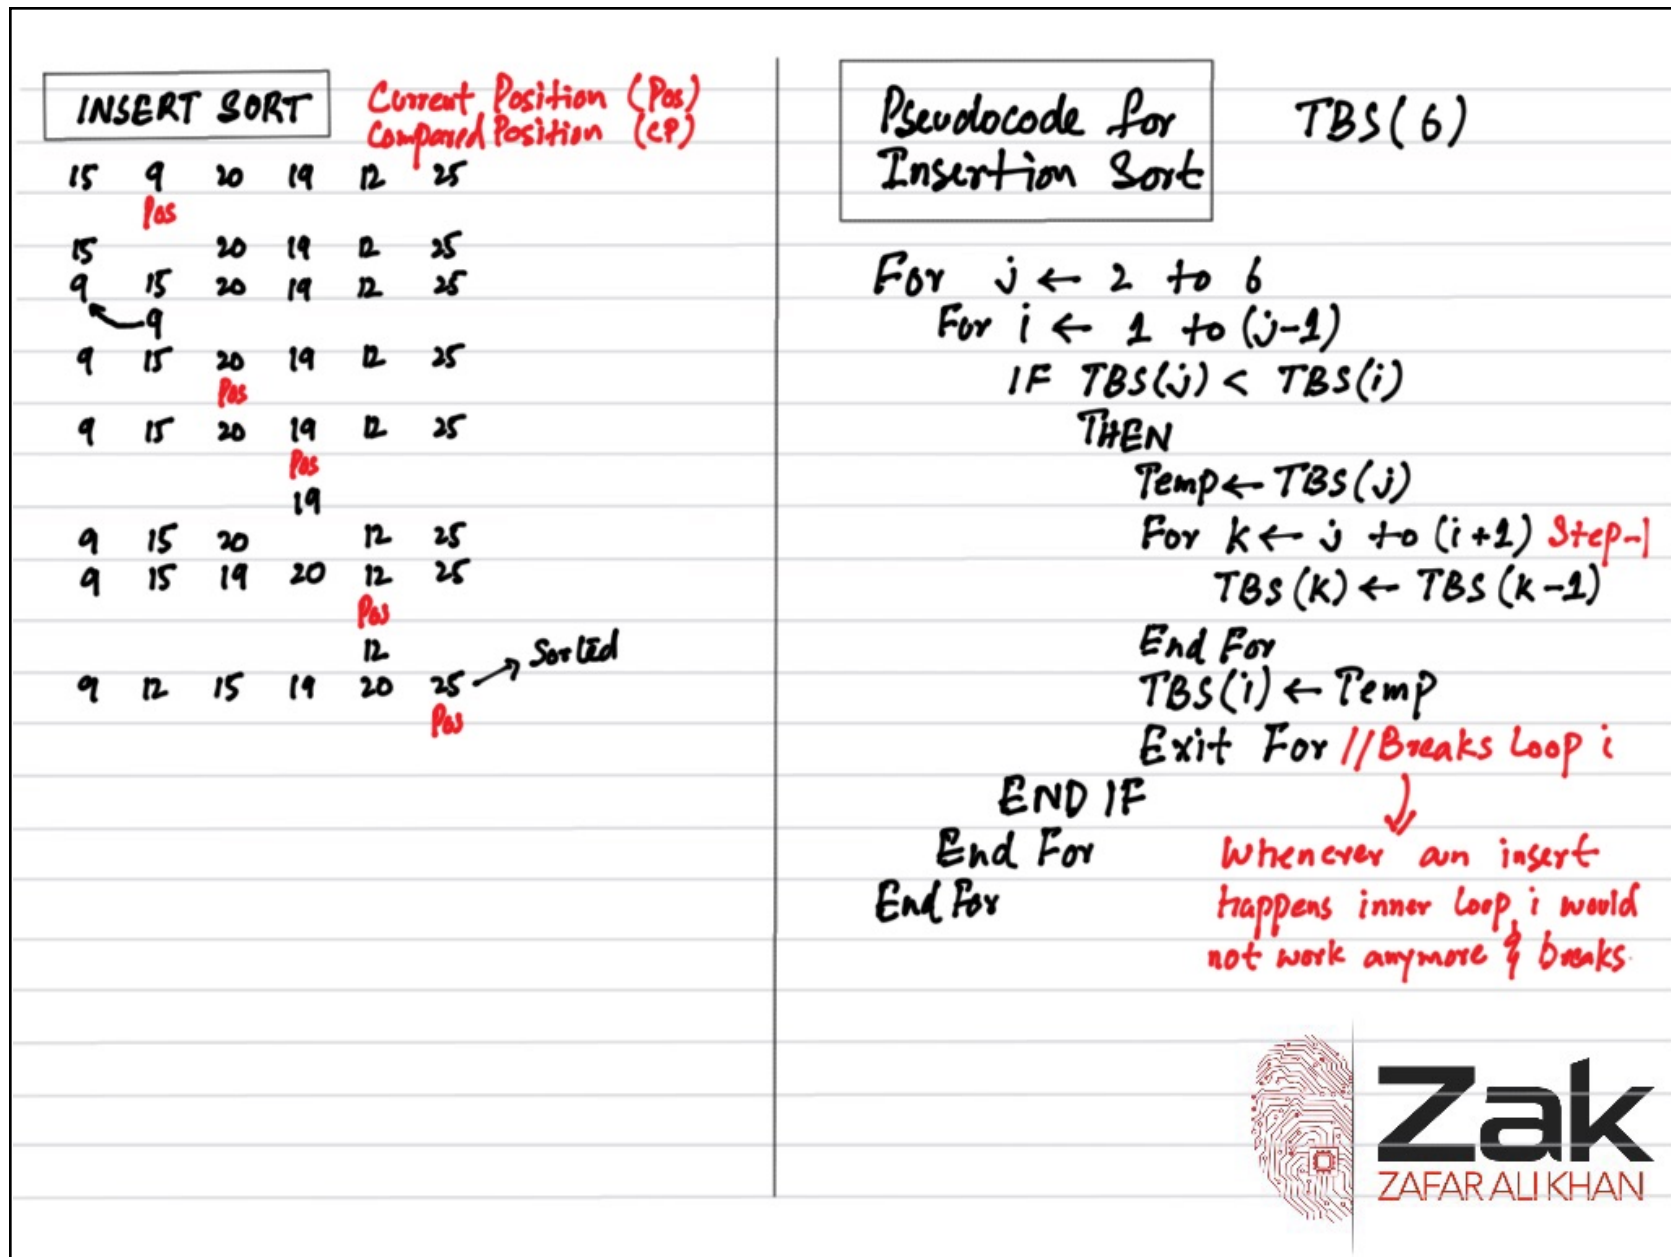 INSERT SORT
Current Position (Pos)
Compared Position (CP)
15 9 20 19 12 25
Pos
15 20 19 12 25
9 15 20 19 12 25
9
9 15 20 19 12 25
Pos
9 15 20 19 12 25
Pos
19
9 15 20 12 25
9 15 19 20 12 25
Pos
12
Sorted
9 12 15 19 20 25
Pos
Pseudocode for
Insertion Sort
TBS(6)
For j ← 2 to 6
For i ← 1 to (j-1)
IF TBS(j) < TBS(i)
THEN
Temp ← TBS(j)
For k ← j to (i+1) Step-1
TBS(k) ← TBS(k-1)
End For
TBS(i) ← Temp
Exit For //Breaks Loop i
END IF
End For
End For
Whenever an insert
happens inner loop i would
not work anymore & breaks.
Zak
ZAFAR ALI KHAN